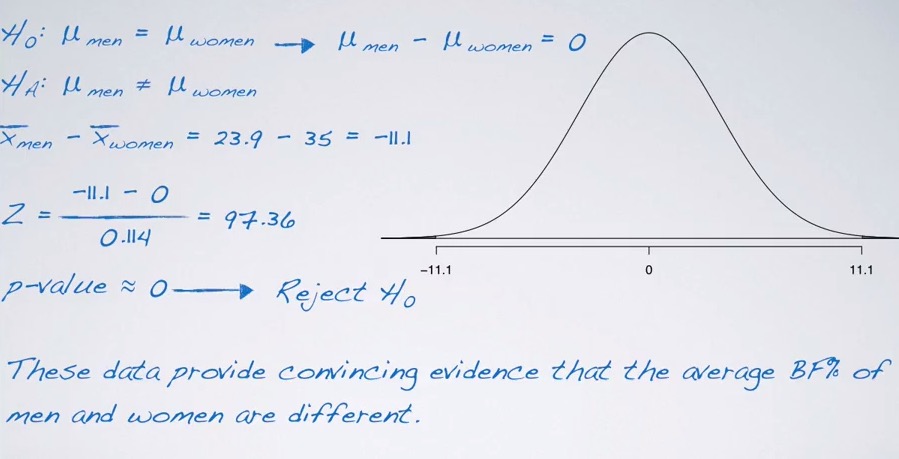 H₀: μ men = μ women → μ men - μ women = 0
H_A: μ men ≠ μ women
x̄men - x̄women = 23.9 - 35 = -11.1
Z = (-11.1 - 0) / 0.114 = 97.36
p-value ≈ 0 → Reject H₀
-11.1 0 11.1
These data provide convincing evidence that the average BF% of
men and women are different.